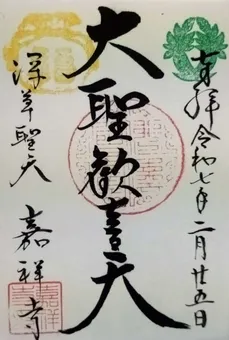 奉拝 令和七年二月廿五日
大聖歓喜天
深草聖天
嘉祥寺